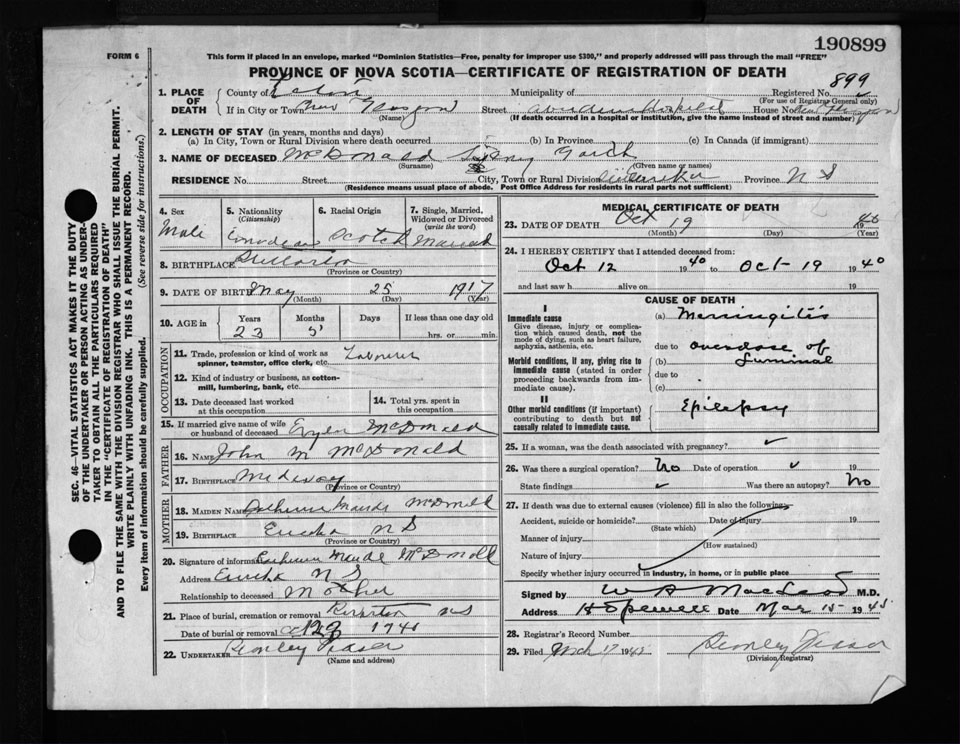 190899
FORM 6
This form if placed in an envelope, marked "Dominion Statistics—Free, penalty for improper use $300," and properly addressed will pass through the mail "FREE"
PROVINCE OF NOVA SCOTIA—CERTIFICATE OF REGISTRATION OF DEATH
SEC. 46—VITAL STATISTICS ACT MAKES IT THE DUTY
OF THE UNDERTAKER OR PERSON ACTING AS UNDER-
TAKER TO OBTAIN ALL THE PARTICULARS REQUIRED
IN THE "CERTIFICATE OF REGISTRATION OF DEATH"
AND TO FILE THE SAME WITH THE DIVISION REGISTRAR WHO SHALL ISSUE THE BURIAL PERMIT.
WRITE PLAINLY WITH UNFADING INK. THIS IS A PERMANENT RECORD.
Every item of information should be carefully supplied. (See reverse side for instructions.)
1. PLACE OF DEATH County of Municipality of Registered No. 899
(For use of Registrar General only)
If in City or Town New Glasgow Street Aberdeen Hospital House No. New Glasgow
(Name) (If death occurred in a hospital or institution, give the name instead of street and number)
2. LENGTH OF STAY (in years, months and days)
(a) In City, Town or Rural Division where death occurred (b) In Province (c) In Canada (if immigrant)
3. NAME OF DECEASED McDonald Sidney
(Surname) (Given name or names)
RESIDENCE No. Street City, Town or Rural Division Province N S
(Residence means usual place of abode. Post Office Address for residents in rural parts not sufficient)
4. Sex Male
5. Nationality (Citizenship) Canadian
6. Racial Origin Scotch
7. Single, Married, Widowed or Divorced (write the word) Married
8. BIRTHPLACE
(Province or Country)
9. DATE OF BIRTH May 25 1917
(Month) (Day) (Year)
10. AGE in Years Months Days If less than one day old
23 5 hrs. or min.
OCCUPATION
11. Trade, profession or kind of work as spinner, teamster, office clerk, etc. Labourer
12. Kind of industry or business, as cotton-mill, lumbering, bank, etc.
13. Date deceased last worked at this occupation
14. Total yrs. spent in this occupation
15. If married give name of wife or husband of deceased McDonald
FATHER
16. NAME John M McDonald
17. BIRTHPLACE
(Province or Country)
MOTHER
18. MAIDEN NAME Catherine Maude
19. BIRTHPLACE Eureka N S
(Province or Country)
20. Signature of informant Catherine Maude
Address Eureka N S
Relationship to deceased Mother
21. Place of burial, cremation or removal N S
Date of burial or removal
22. UNDERTAKER
(Name and address)
MEDICAL CERTIFICATE OF DEATH
23. DATE OF DEATH Oct 19 1940
(Month) (Day) (Year)
24. I HEREBY CERTIFY that I attended deceased from:
Oct 12 1940 to Oct 19 1940
and last saw h alive on 19
CAUSE OF DEATH
I
Immediate cause
Give disease, injury or complication which caused death, not the mode of dying, such as heart failure, asphyxia, asthenia, etc.
(a) Meningitis
due to overdose of
Morbid conditions, if any, giving rise to immediate cause (stated in order proceeding backwards from immediate cause).
(b) Luminal
due to
(c)
II
Other morbid conditions (if important) contributing to death but not causally related to immediate cause.
Epilepsy
25. If a woman, was the death associated with pregnancy?
26. Was there a surgical operation? No Date of operation 19
State findings Was there an autopsy? No
27. If death was due to external causes (violence) fill in also the following:
Accident, suicide or homicide? Date of injury 19
(State which)
Manner of injury
(How sustained)
Nature of injury
Specify whether injury occurred in industry, in home, or in public place
Signed by W A MacLeod M.D.
Address Hopewell Date Mar 15 1945
28. Registrar's Record Number
29. Filed March 17
(Division Registrar)